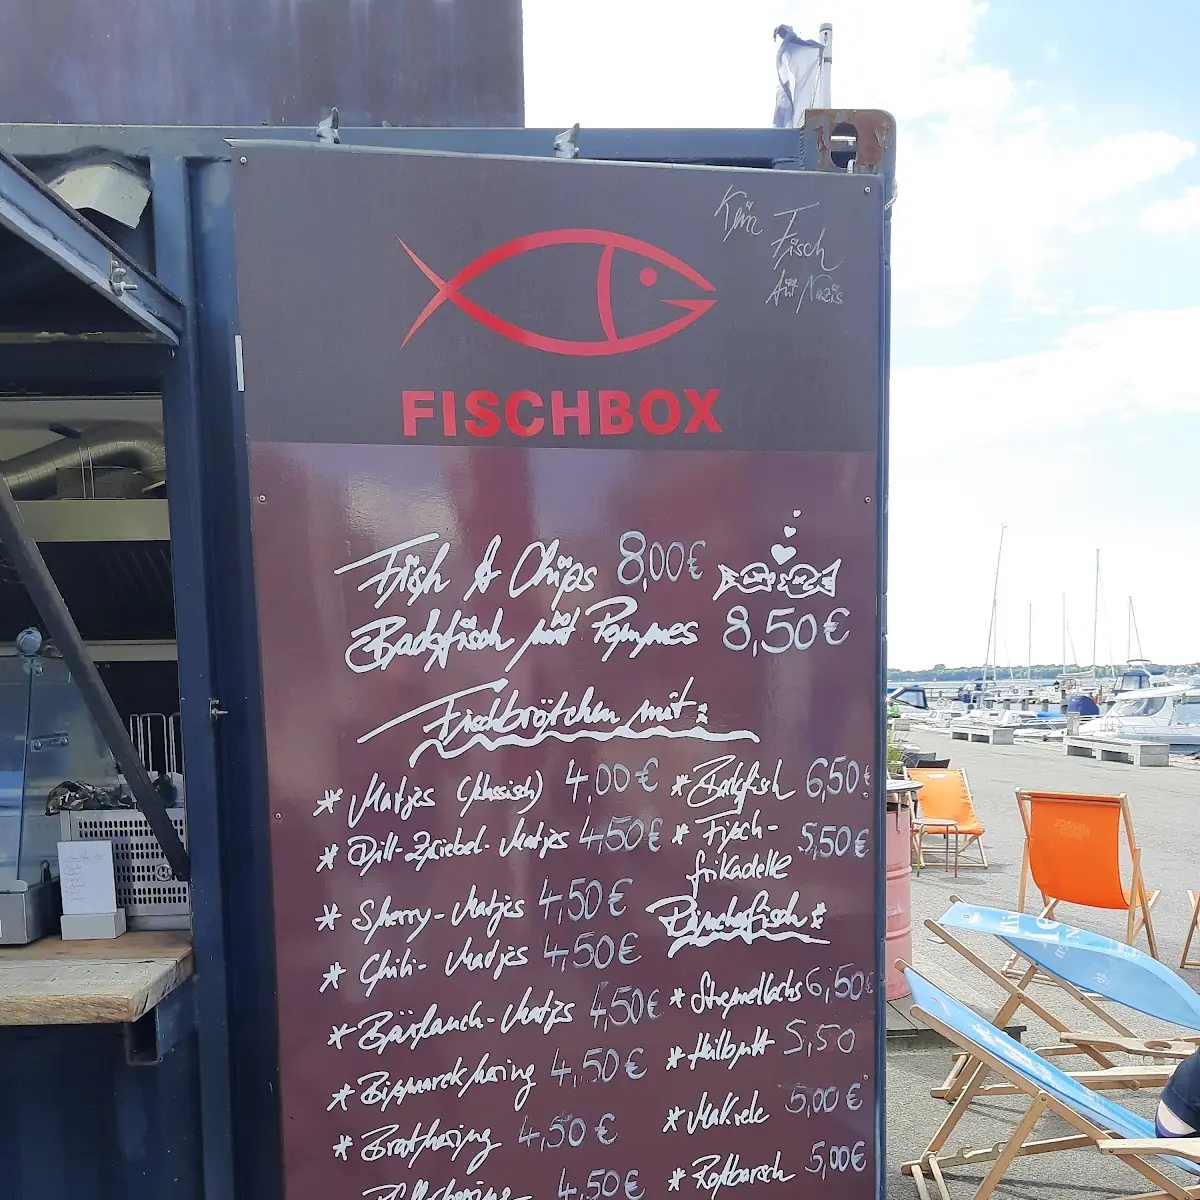 Kein
Fisch
Auf Nazis
FISCHBOX
Fish & Chips 8,00€
Backfisch mit Pommes 8,50€
Fischbrötchen mit:
* Matjes (klassisch) 4,00€
* Dill-Zwiebel-Matjes 4,50€
* Sherry-Matjes 4,50€
* Chili-Matjes 4,50€
* Bärlauch-Matjes 4,50€
* Bismarckhering 4,50€
* Brathering 4,50€
4,50€
* Backfisch 6,50€
* Fisch-
frikadelle 5,50€
Räucherfisch:
* Stremellachs 6,50€
* Heilbutt 5,50
* Makrele 5,00€
* Rotbarsch 5,00€